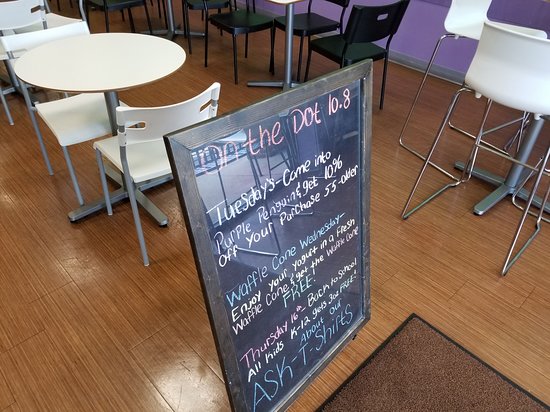 On the Dot 10.8
Tuesday's - Come into
Purple Penguin & get 10%
off your Purchase 55 + older
Waffle Cone Wednesday -
Enjoy your yogurt in a Fresh
Waffle Cone & get the Waffle Cone
FREE!
Thursday 16th Back to School
All Kids K-12 gets 3oz FREE!
About Our
ASK - T-Shirts